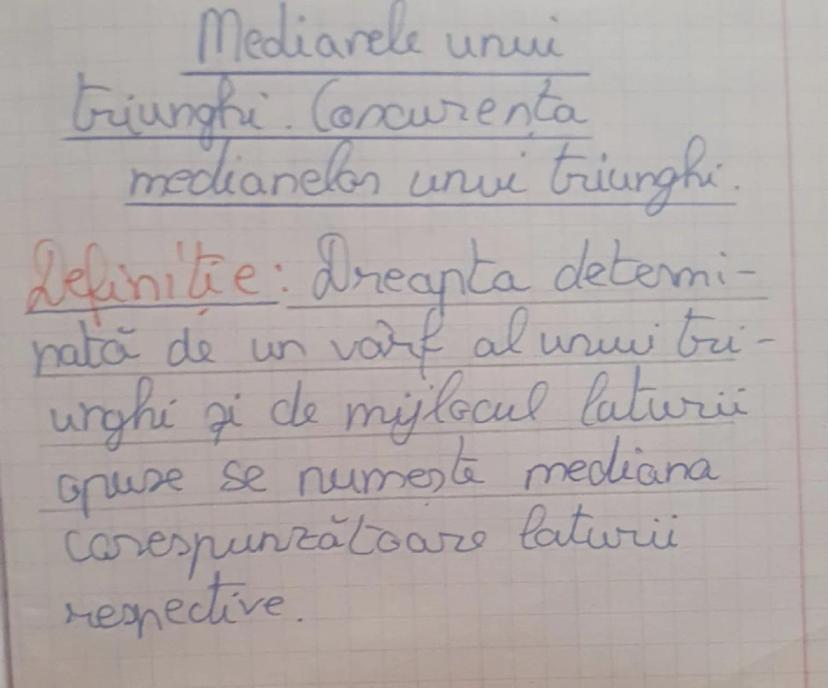 Medianele unui
triunghi. Concurența
medianelor unui triunghi.
Definiție: Dreapta determi-
nată de un vârf al unui tri-
unghi și de mijlocul laturii
opuse se numește mediana
corespunzătoare laturii
respective.